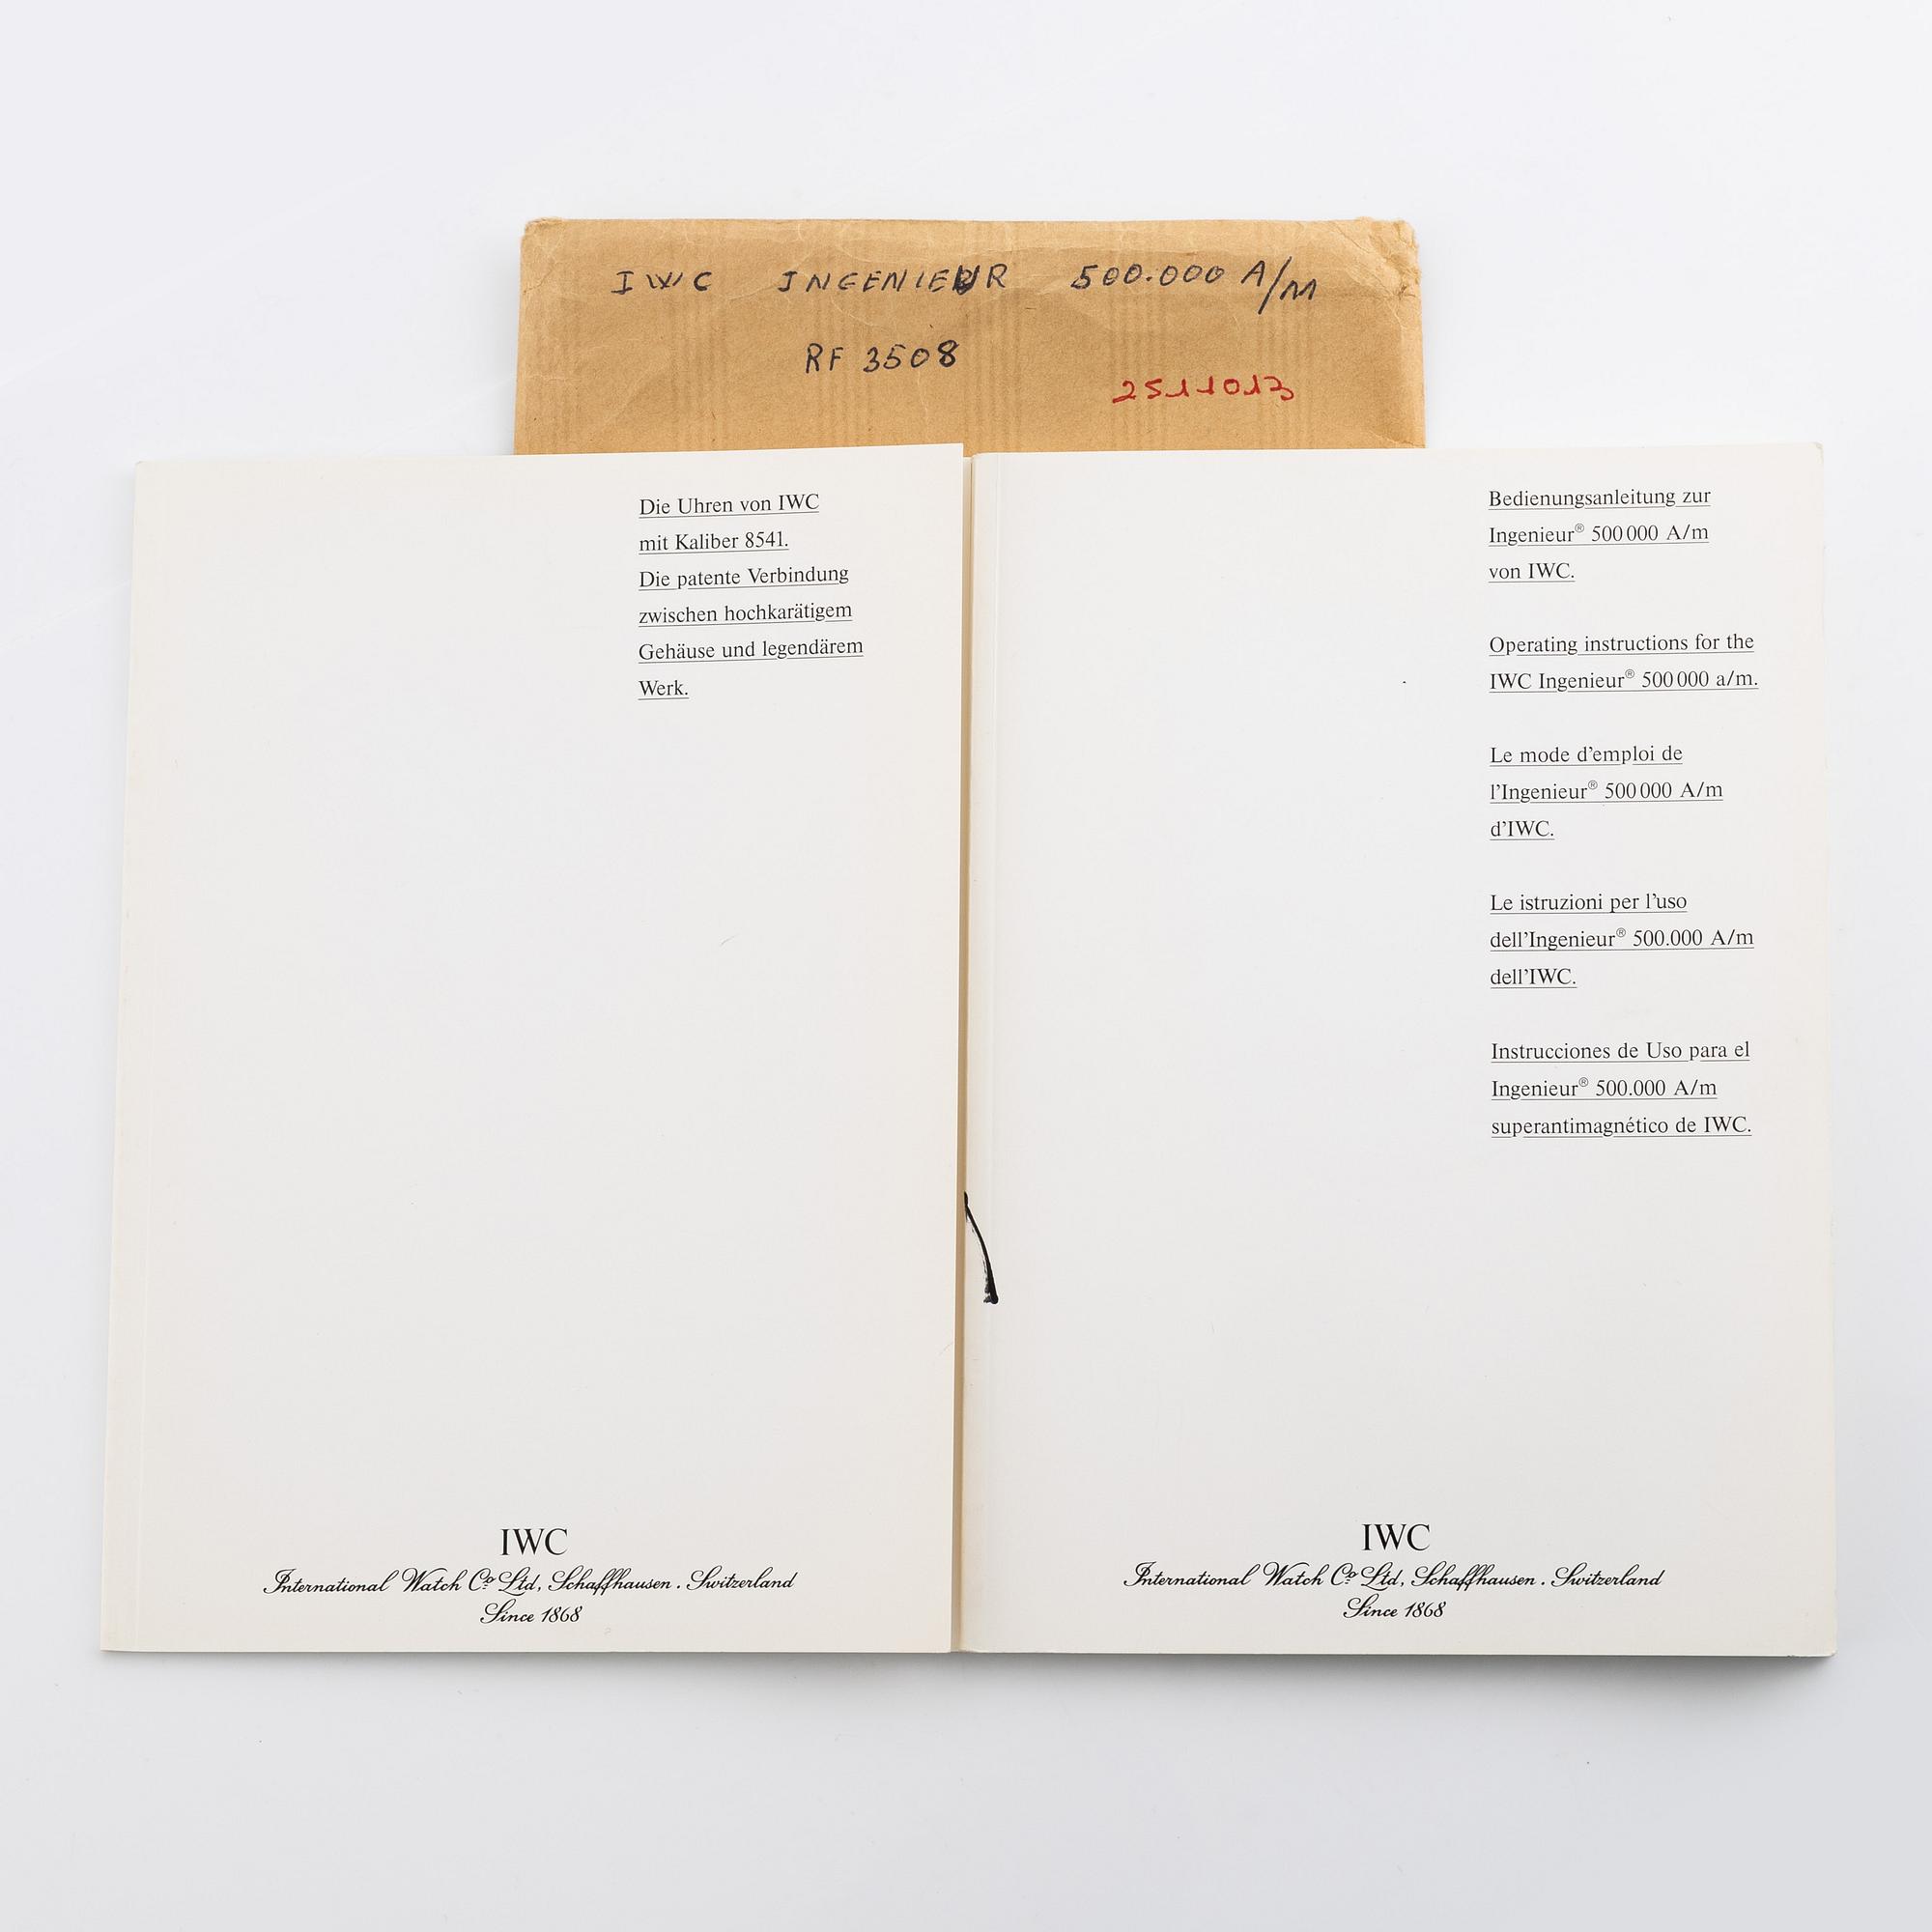 IWC INGENIEUR 500.000 A/m
RF 3508
2511013
Die Uhren von IWC
mit Kaliber 8541.
Die patente Verbindung
zwischen hochkarätigem
Gehäuse und legendärem
Werk.
IWC
International Watch Co Ltd, Schaffhausen . Switzerland
Since 1868
Bedienungsanleitung zur
Ingenieur® 500 000 A/m
von IWC.
Operating instructions for the
IWC Ingenieur® 500 000 a/m.
Le mode d'emploi de
l'Ingenieur® 500 000 A/m
d'IWC.
Le istruzioni per l'uso
dell'Ingenieur® 500.000 A/m
dell'IWC.
Instrucciones de Uso para el
Ingenieur® 500.000 A/m
superantimagnético de IWC.
IWC
International Watch Co Ltd, Schaffhausen . Switzerland
Since 1868